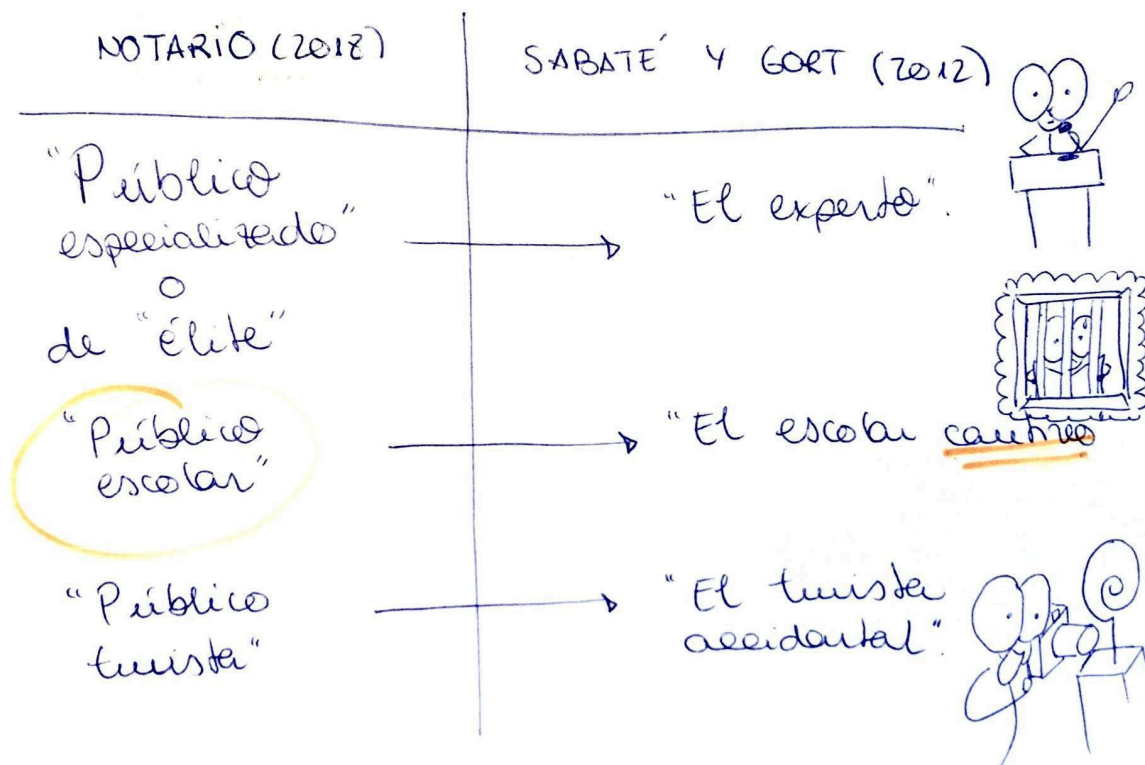 NOTARIO (2018)
SABATÉ Y GORT (2012)
"Público
especializado"
o
de "élite"
"El experto".
"Público
escolar"
"El escolar cautivo
"Público
turista"
"El turista
accidental".